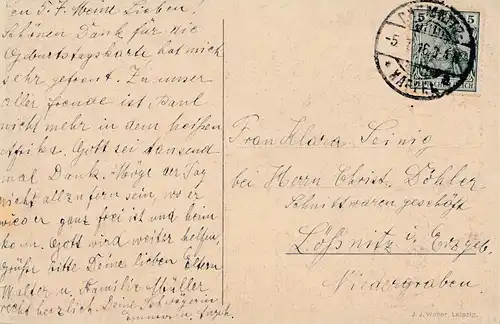 en 5.7. Meine Lieben!
Schönen Dank für die
Geburtstagskarte hat mich
sehr gefreut. Zu unser
aller Freude ist Paul
nicht mehr in dem heißen
Afrika. Gott sei tausend
mal Dank. Möge der Tag
nicht allzufern sein, wo er
wieder ganz frei ist und heim
kom. Gott wird weiter helfen,
grüße bitte Deine lieben Eltern
Walter u. Familie Müller
recht herzlich. Deine Schwägerin
Emma u.
CHEMNITZ
-5. 7. 16. 3-4
* KAPPEL
5 5
Frau Klara Seinig
bei Herrn Christ. Döhler
Schnittwaren geschäft
Lößnitz i. Erzgeb.
Niedergraben.
J. J. Weber, Leipzig.